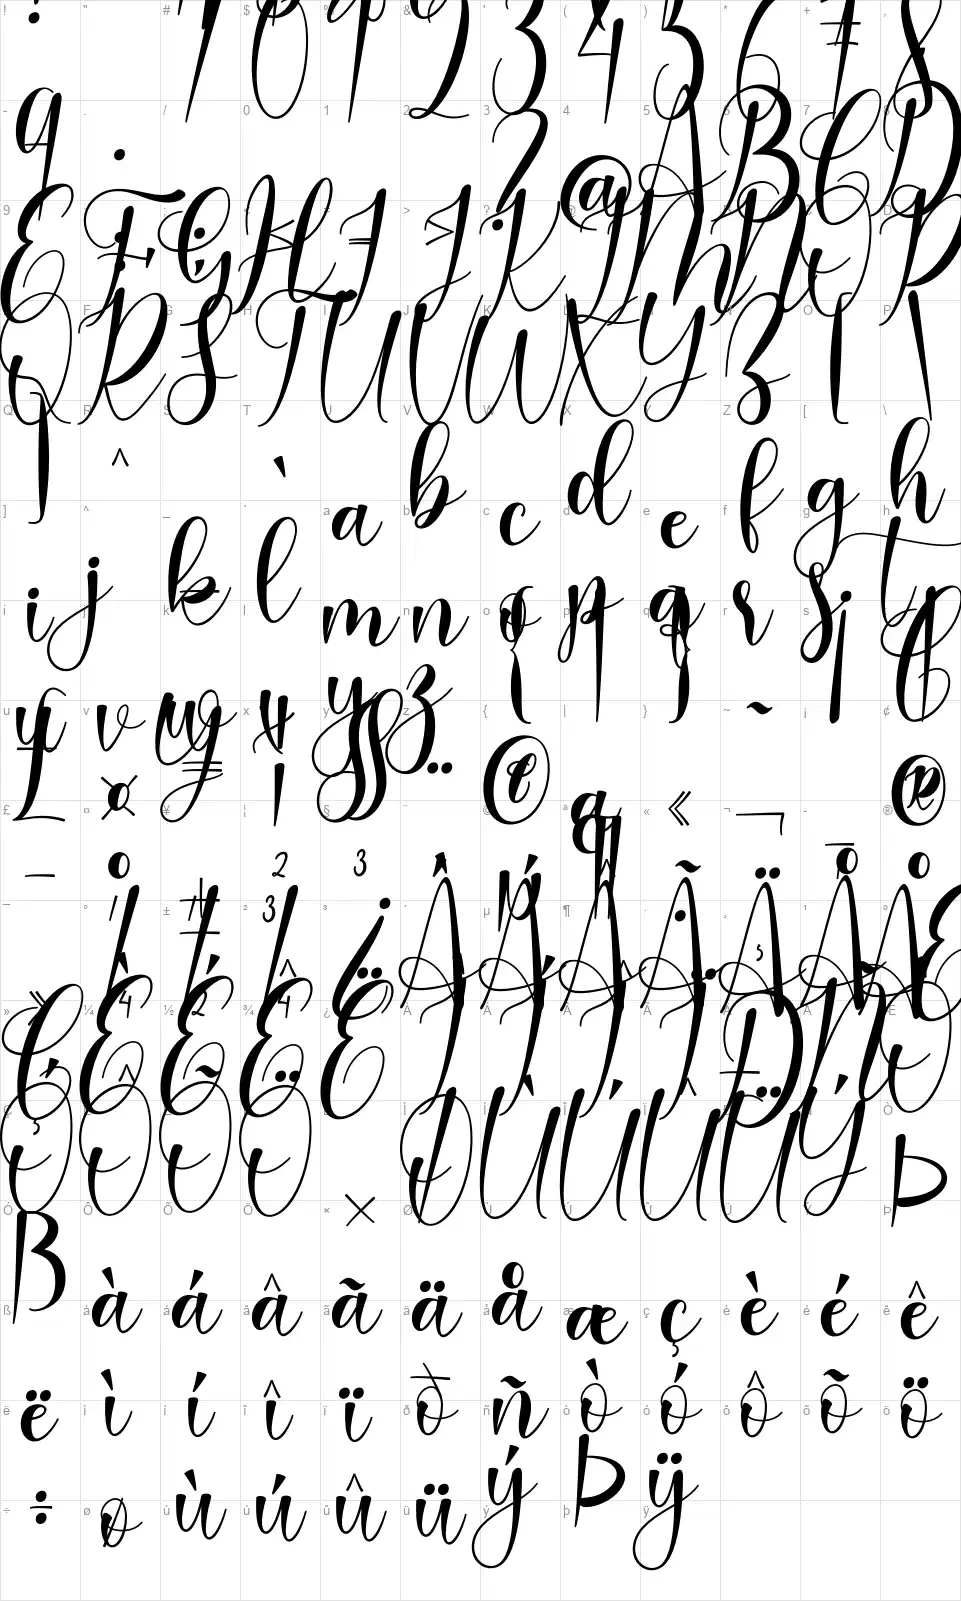 ! " # $ % & ' ( ) * + ,
- . / 0 1 2 3 4 5 6 7 8
9 : ; < = > ? @ A B C D
E F G H I J K L M N O P
Q R S T U V W X Y Z [ \
] ^ _ ` a b c d e f g h
i j k l m n o p q r s t
u v w x y z { | } ~ ¡ ¢
£ ¤ ¥ ¦ § ¨ © ª « ¬ - ®
¯ ° ± ² ³ ´ µ ¶ · ¸ ¹ º
» ¼ ½ ¾ ¿ À Á Â Ã Ä Å Æ
Ç È É Ê Ë Ì Í Î Ï Ð Ñ Ò
Ó Ô Õ Ö × Ø Ù Ú Û Ü Ý Þ
ß à á â ã ä å æ ç è é ê
ë ì í î ï ð ñ ò ó ô õ ö
÷ ø ù ú û ü ý þ ÿ